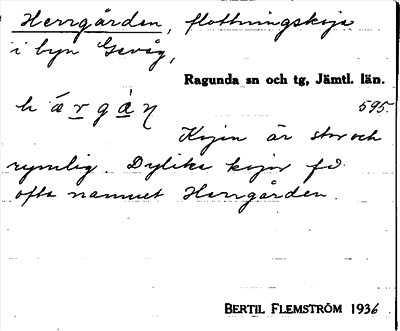 Herrgården, flottningskoja
i byn Gevåg,
Ragunda sn och tg, Jämtl. län.
595.
Kojan är stor och
rymlig. Dylika kojor få
ofta namnet Herrgården.
BERTIL FLEMSTRÖM 1936